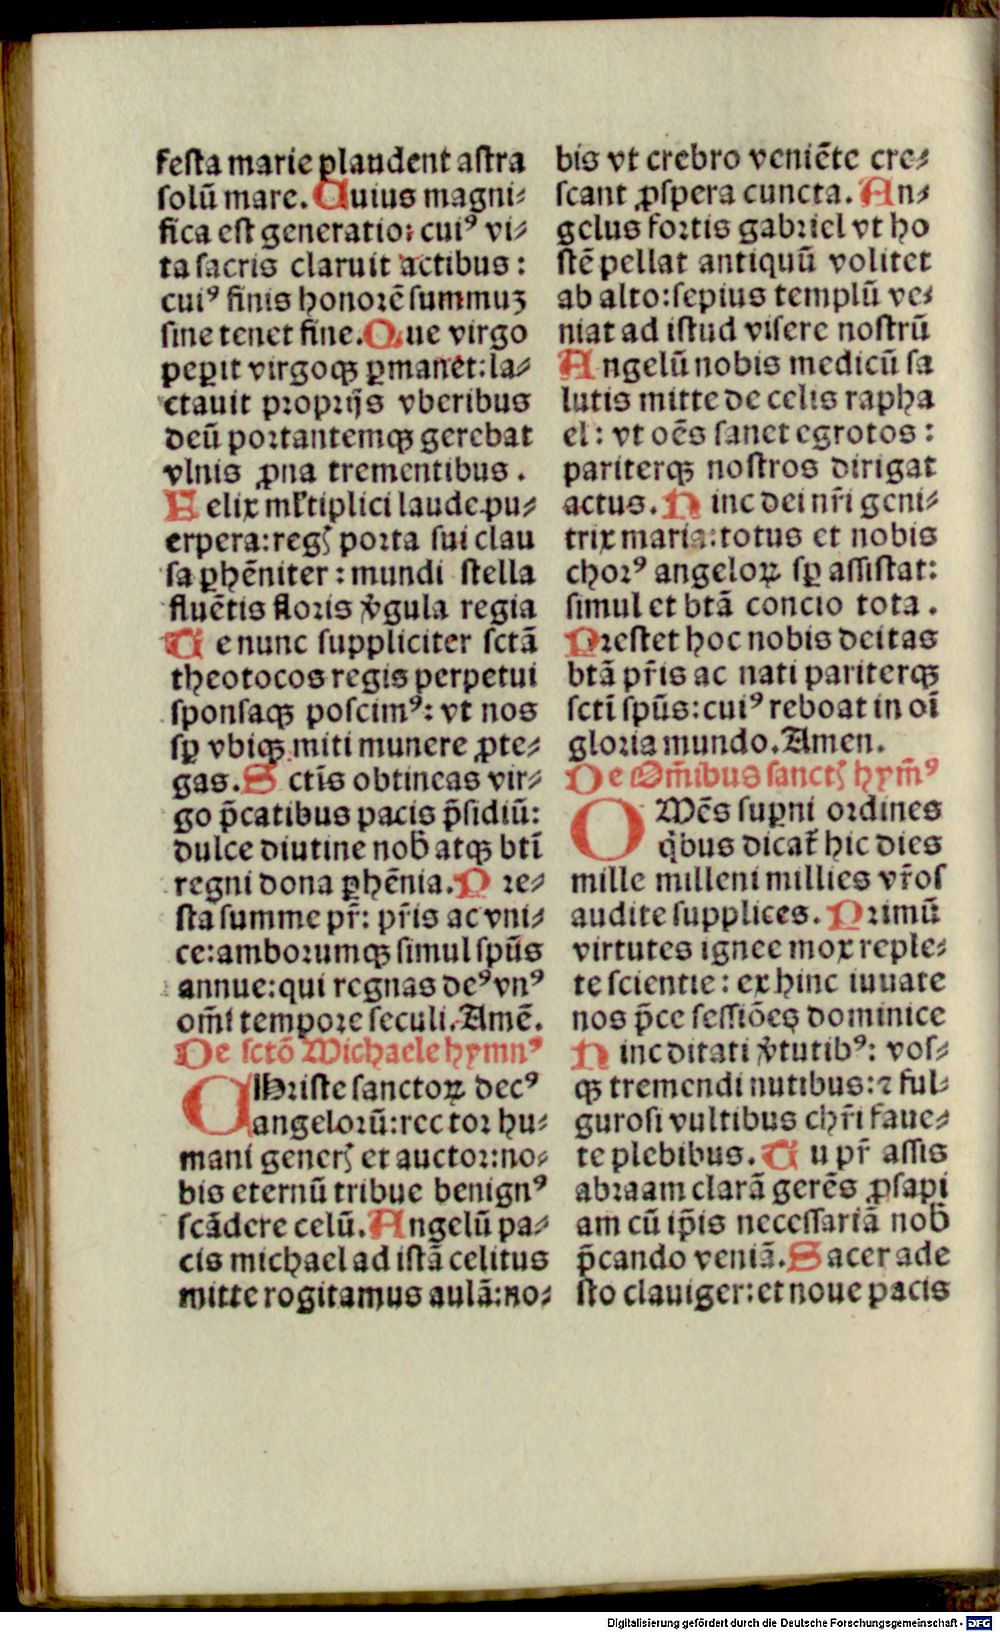 festa marie plaudent astra
solū mare. Cuius magni⸗
fica est generatio: cuiꝰ vi⸗
ta sacris claruit actibus:
cuiꝰ finis honorē summuꝫ
sine tenet fine. Que virgo
peꝑit virgoqꝫ ꝑmanet: la⸗
ctauit proprijs vberibus
deū portantemqꝫ gerebat
vlnis ꝓna trementibus.
Felix mꝉtiplici laude pu⸗
erpera: regꝭ porta sui clau
sa ꝑhēniter: mundi stella
fluētis floris v̓gula regia
Te nunc suppliciter sctā
theotocos regis perpetui
sponsaqꝫ poscimꝰ: vt nos
sꝑ vbiqꝫ miti munere ꝓte⸗
gas. Sctīs obtineas vir⸗
go p̄catibus pacis p̄sidiū:
dulce diutine nob̄ atqꝫ btī
regni dona ꝑhēnia. Pre⸗
sta summe pr̄: pr̄is ac vni⸗
ce: amborumqꝫ simul spūs
annue: qui regnas deꝰ vnꝰ
om̄i tempore seculi. Amē.
De sctō Michaele hymnꝰ
CHriste sanctoꝝ decꝰ
angelorū: rector hu⸗
mani generꝭ et auctor: no⸗
bis eternū tribue benignꝰ
scādere celū. Angelū pa⸗
cis michael ad istā celitus
mitte rogitamus aulā: no⸗
bis vt crebro veniēte cre⸗
scant ꝓspera cuncta. An⸗
gelus fortis gabriel vt ho
stē pellat antiquū volitet
ab alto: sepius templū ve⸗
niat ad istud visere nostrū
Angelū nobis medicū sa
lutis mitte de celis rapha
el: vt oēs sanet egrotos:
pariterqꝫ nostros dirigat
actus. Hinc dei nr̄i geni⸗
trix maria: totus et nobis
chorꝰ angeloꝝ sꝑ assistat:
simul et btā concio tota.
Prestet hoc nobis deitas
btā pr̄is ac nati pariterqꝫ
sctī spūs: cuiꝰ reboat in oī
gloria mundo. Amen.
De Om̄ibus sanctꝭ hym̄ꝰ
OMēs suꝑni ordines
q̇bus dicat̄ hic dies
mille milleni millies vr̄os
audite supplices. Primū
virtutes ignee mox reple⸗
te scientie: ex hinc iuuate
nos p̄ce sessiōes dominice
Hinc ditati v̓tutibꝰ: vos⸗
qꝫ tremendi nutibus: ⁊ ful⸗
gurosi vultibus chr̄i faue⸗
te plebibus. Tu pr̄ assis
abraam clarā gerēs ꝓsapi
am cū ip̄is necessariā nob̄
p̄cando veniā. Sacer ade
sto clauiger: et noue pacis
Digitalisierung gefördert durch die Deutsche Forschungsgemeinschaft - DFG